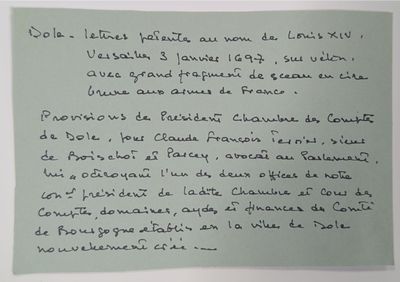 Dole - lettres patentes au nom de Louis XIV.
Versailles 3 janvier 1697, sur vélin.
avec grand fragment de sceau en cire
brune aux armes de France.
Provisions de Président Chambre des Comptes
de Dole, pour Claude François Terrier, sieur
de Boischot et Parcey, avocat au Parlement.
lui "octroyant l'un des deux offices de notre
con.er président de ladite Chambre et cour des
Comptes, domaines, aydes et finances du Comté
de Bourgogne établis en la ville de Dole
nouvellement créé.